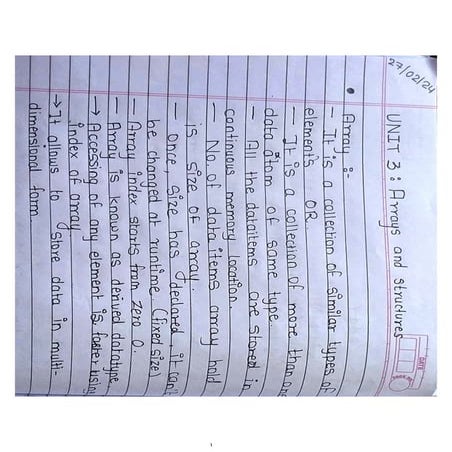 27/02/24
DATE
UNIT 3 : Arrays and structures
Array :-
- It is a collection of similar types of
elements OR
- It is a collection of more than one
data atom of same type.
- All the dataitems are stored in
continuous memory location.
- No. of data items array hold
is size of array.
- Once, size has declared, it can't
be changed at runtime. (fixed size)
- Array index starts from zero 0.
- Array is known as derived datatype.
→ Accessing of any element is faster using
index of array
→ It allows to store data in multi-
dimensional form.